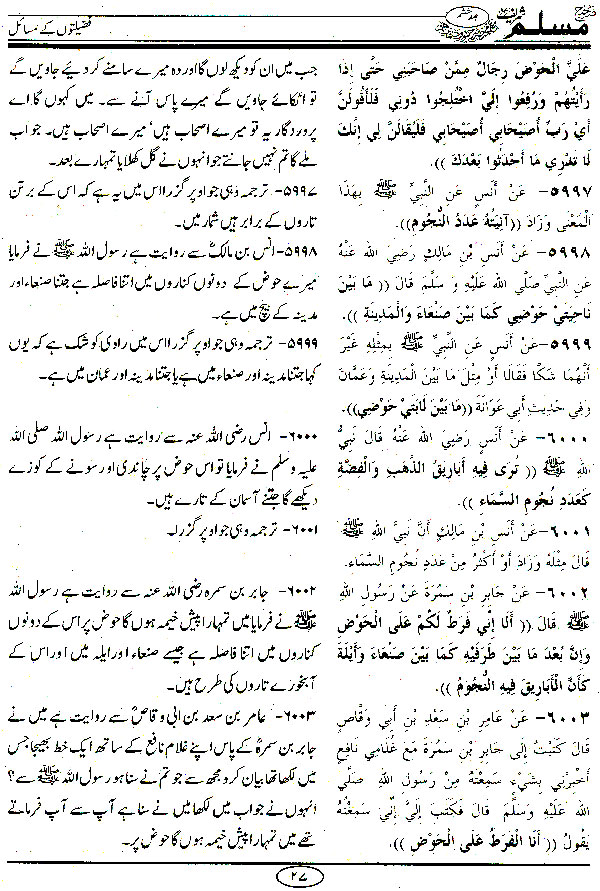 مسلم
فضیلتوں کے مسائل
عَلَيَّ الْحَوْضَ رِجَالٌ مِمَّنْ صَاحَبَنِي حَتَّى إِذَا
رَأَيْتُهُمْ وَرُفِعُوا إِلَيَّ اخْتُلِجُوا دُونِي فَلَأَقُولَنَّ
أَيْ رَبِّ أُصَيْحَابِي أُصَيْحَابِي فَلَيُقَالَنَّ لِي إِنَّكَ
لَا تَدْرِي مَا أَحْدَثُوا بَعْدَكَ )).
٥٩٩٧- عَنْ أَنَسٍ عَنِ النَّبِيِّ ﷺ بِهَذَا
الْمَعْنَى وَزَادَ ((آنِيَتُهُ عَدَدُ النُّجُومِ)).
٥٩٩٨- عَنْ أَنَسِ بْنِ مَالِكٍ رَضِيَ الله عَنْهُ
عَنِ النَّبِيِّ صَلَّى الله عَلَيْهِ وَ سَلَّمَ قَالَ (( مَا بَيْنَ
نَاحِيَتَيْ حَوْضِي كَمَا بَيْنَ صَنْعَاءَ وَالْمَدِينَةِ )).
٥٩٩٩- عَنْ أَنَسٍ عَنِ النَّبِيِّ ﷺ بِمِثْلِهِ غَيْرَ
أَنَّهُمَا شَكَّا فَقَالَا أَوْ مِثْلَ مَا بَيْنَ الْمَدِينَةِ وَعَمَّانَ
وَفِي حَدِيثِ أَبِي عَوَانَةَ ((مَا بَيْنَ لَابَتَيْ حَوْضِي)).
٦٠٠٠- عَنْ أَنَسٍ رَضِيَ اللهُ عَنْهُ قَالَ نَبِيُّ
اللهِ ﷺ (( تُرَى فِيهِ أَبَارِيقُ الذَّهَبِ وَالْفِضَّةِ
كَعَدَدِ نُجُومِ السَّمَاءِ )).
٦٠٠١- عَنْ أَنَسُ بْنُ مَالِكٍ أَنَّ نَبِيَّ اللهِ ﷺ
قَالَ مِثْلَهُ وَزَادَ أَوْ أَكْثَرُ مِنْ عَدَدِ نُجُومِ السَّمَاءِ.
٦٠٠٢- عَنْ جَابِرِ بْنِ سَمُرَةَ عَنْ رَسُولِ اللهِ
ﷺ قَالَ (( أَلَا إِنِّي فَرَطٌ لَكُمْ عَلَى الْحَوْضِ
وَإِنَّ بُعْدَ مَا بَيْنَ طَرَفَيْهِ كَمَا بَيْنَ صَنْعَاءَ وَأَيْلَةَ
كَأَنَّ الْأَبَارِيقَ فِيهِ النُّجُومُ )).
٦٠٠٣- عَنْ عَامِرِ بْنِ سَعْدِ بْنِ أَبِي وَقَّاصٍ
قَالَ كَتَبْتُ إِلَى جَابِرِ بْنِ سَمُرَةَ مَعَ غُلَامِي نَافِعٍ
أَخْبِرْنِي بِشَيْءٍ سَمِعْتَهُ مِنْ رَسُولِ اللهِ صَلَّى
الله عَلَيْهِ وَسَلَّمَ قَالَ فَكَتَبَ إِلَيَّ إِنِّي سَمِعْتُهُ
يَقُولُ (( أَنَا الْفَرَطُ عَلَى الْحَوْضِ )).
جب میں ان کو دیکھ لوں گا اور وہ میرے سامنے کر دیئے جاویں گے
تو اٹکائے جاویں گے میرے پاس آنے سے۔ میں کہوں گا اے
پروردگار یہ تو میرے اصحاب ہیں' میرے اصحاب ہیں۔ جواب
ملے گا تم نہیں جانتے جو انہوں نے گل کھلایا تمہارے بعد۔
۵۹۹۷- ترجمہ وہی جو اوپر گزرا اس میں یہ ہے کہ اس کے برتن
تاروں کے برابر ہیں شمار میں۔
۵۹۹۸- انس بن مالکؓ سے روایت ہے رسول اللہ ﷺ نے فرمایا
میرے حوض کے دونوں کناروں میں اتنا فاصلہ ہے جتنا صنعاء اور
مدینہ کے بیچ میں ہے۔
۵۹۹۹- ترجمہ وہی جو اوپر گزرا اس میں راوی کو شک ہے کہ یوں
کہا جتنا مدینہ اور صنعاء میں ہے یا جتنا مدینہ اور عمان میں ہے۔
۶۰۰۰- انس رضی اللہ عنہ سے روایت ہے رسول اللہ صلی اللہ
علیہ وسلم نے فرمایا تو اس حوض پر چاندی اور سونے کے کوزے
دیکھے گا جتنے آسمان کے تارے ہیں۔
۶۰۰۱- ترجمہ وہی جو اوپر گزرا۔
۶۰۰۲- جابر بن سمرہ رضی اللہ عنہ سے روایت ہے رسول اللہ
ﷺ نے فرمایا میں تمہارا پیش خیمہ ہوں گا حوض پر اس کے دونوں
کناروں میں اتنا فاصلہ ہے جیسے صنعاء اور ایلہ میں اور اس کے
آبخورے تاروں کی طرح ہیں۔
۶۰۰۳- عامر بن سعد بن ابی وقاصؓ سے روایت ہے میں نے
جابر بن سمرہؓ کے پاس اپنے غلام نافع کے ساتھ ایک خط بھیجا جس
میں لکھا تھا بیان کرو مجھ سے جو تم نے سنا ہو رسول اللہ ﷺ سے؟
انہوں نے جواب میں لکھا میں نے سنا ہے آپ سے آپ فرماتے
تھے میں تمہارا پیش خیمہ ہوں گا حوض پر۔
۲۷